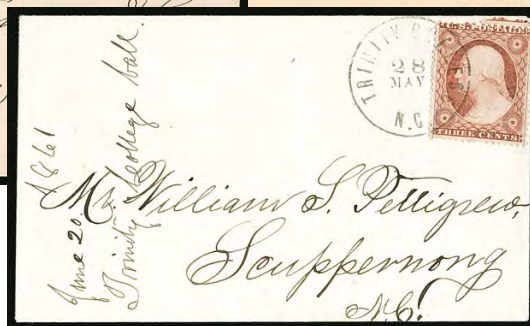 TRINITY
28
MAY
N.C.
THREE CENTS
June 20. 1861
Trinity College ball.
Mr. William S. Pettigrew,
Scuppernong
N.C.